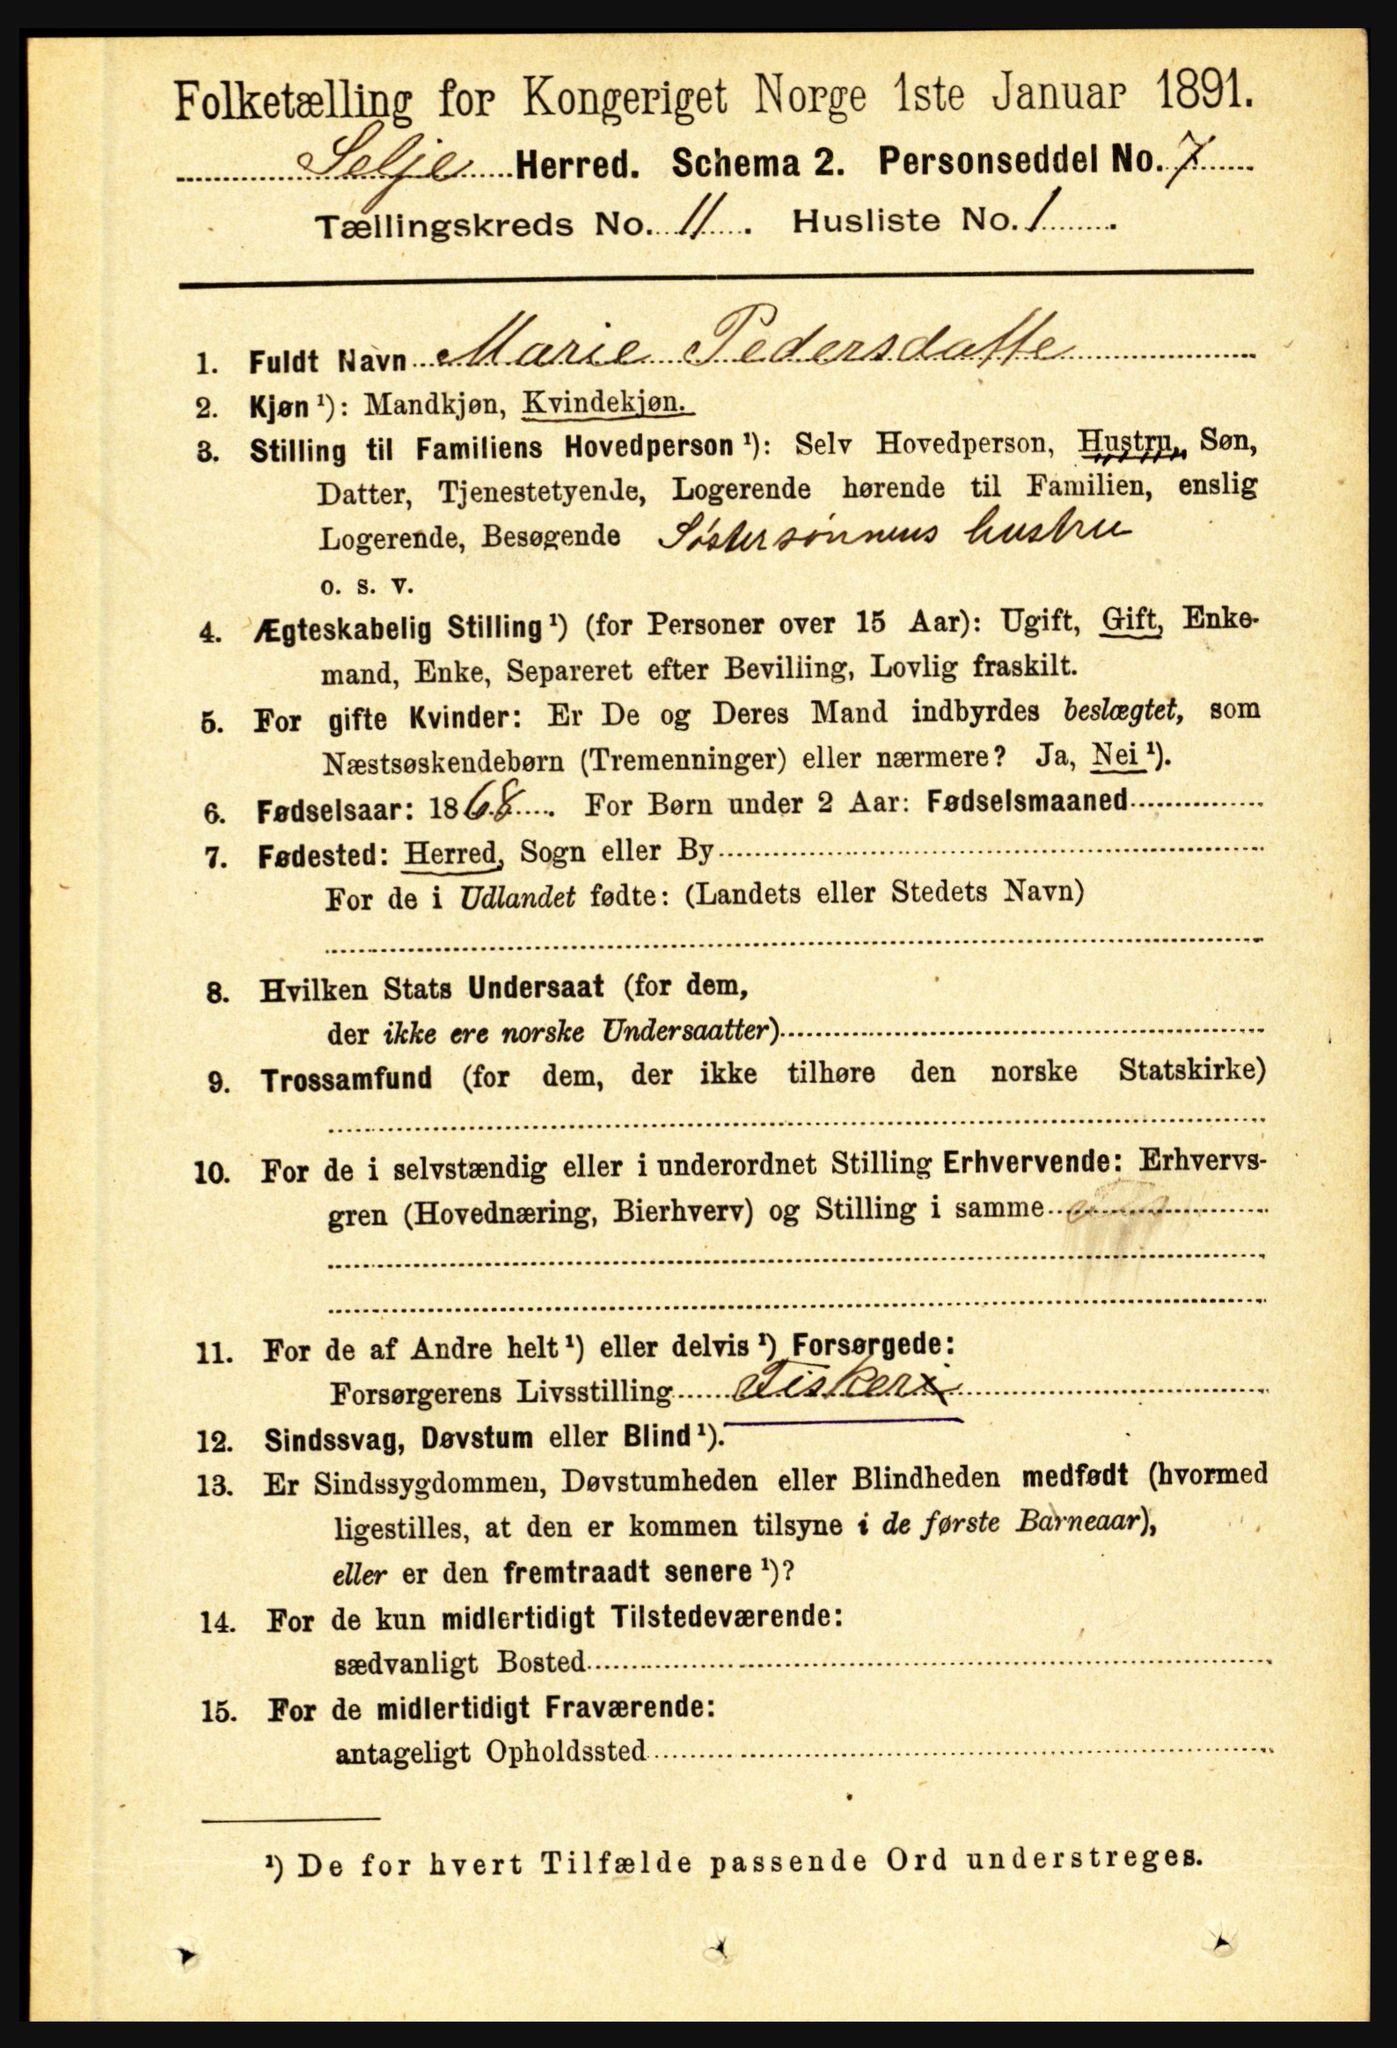 Folketælling for Kongeriget Norge 1ste Januar 1891.
Selje Herred. Schema 2. Personseddel No. 7
Tællingskreds No. 11. Husliste No. 1.
1. Fuldt Navn Marie Pedersdatte
2. Kjøn ¹): Mandkjøn, Kvindekjøn.
3. Stilling til Familiens Hovedperson ¹): Selv Hovedperson, Hustru, Søn,
Datter, Tjenestetyende, Logerende hørende til Familien, enslig
Logerende, Besøgende Søstersønnens hustru
o. s. v.
4. Ægteskabelig Stilling ¹) (for Personer over 15 Aar): Ugift, Gift, Enke-
mand, Enke, Separeret efter Bevilling, Lovlig fraskilt.
5. For gifte Kvinder: Er De og Deres Mand indbyrdes beslægtet, som
Næstsøskendebørn (Tremenninger) eller nærmere? Ja, Nei ¹).
6. Fødselsaar: 1868. For Børn under 2 Aar: Fødselsmaaned
7. Fødested: Herred, Sogn eller By
For de i Udlandet fødte: (Landets eller Stedets Navn)
8. Hvilken Stats Undersaat (for dem,
der ikke ere norske Undersaatter)
9. Trossamfund (for dem, der ikke tilhøre den norske Statskirke)
10. For de i selvstændig eller i underordnet Stilling Erhvervende: Erhvervs-
gren (Hovednæring, Bierhverv) og Stilling i samme
11. For de af Andre helt ¹) eller delvis ¹) Forsørgede:
Forsørgerens Livsstilling Fisker x
12. Sindssvag, Døvstum eller Blind ¹).
13. Er Sindssygdommen, Døvstumheden eller Blindheden medfødt (hvormed
ligestilles, at den er kommen tilsyne i de første Barneaar),
eller er den fremtraadt senere ¹)?
14. For de kun midlertidigt Tilstedeværende:
sædvanligt Bosted
15. For de midlertidigt Fraværende:
antageligt Opholdssted
¹) De for hvert Tilfælde passende Ord understreges.